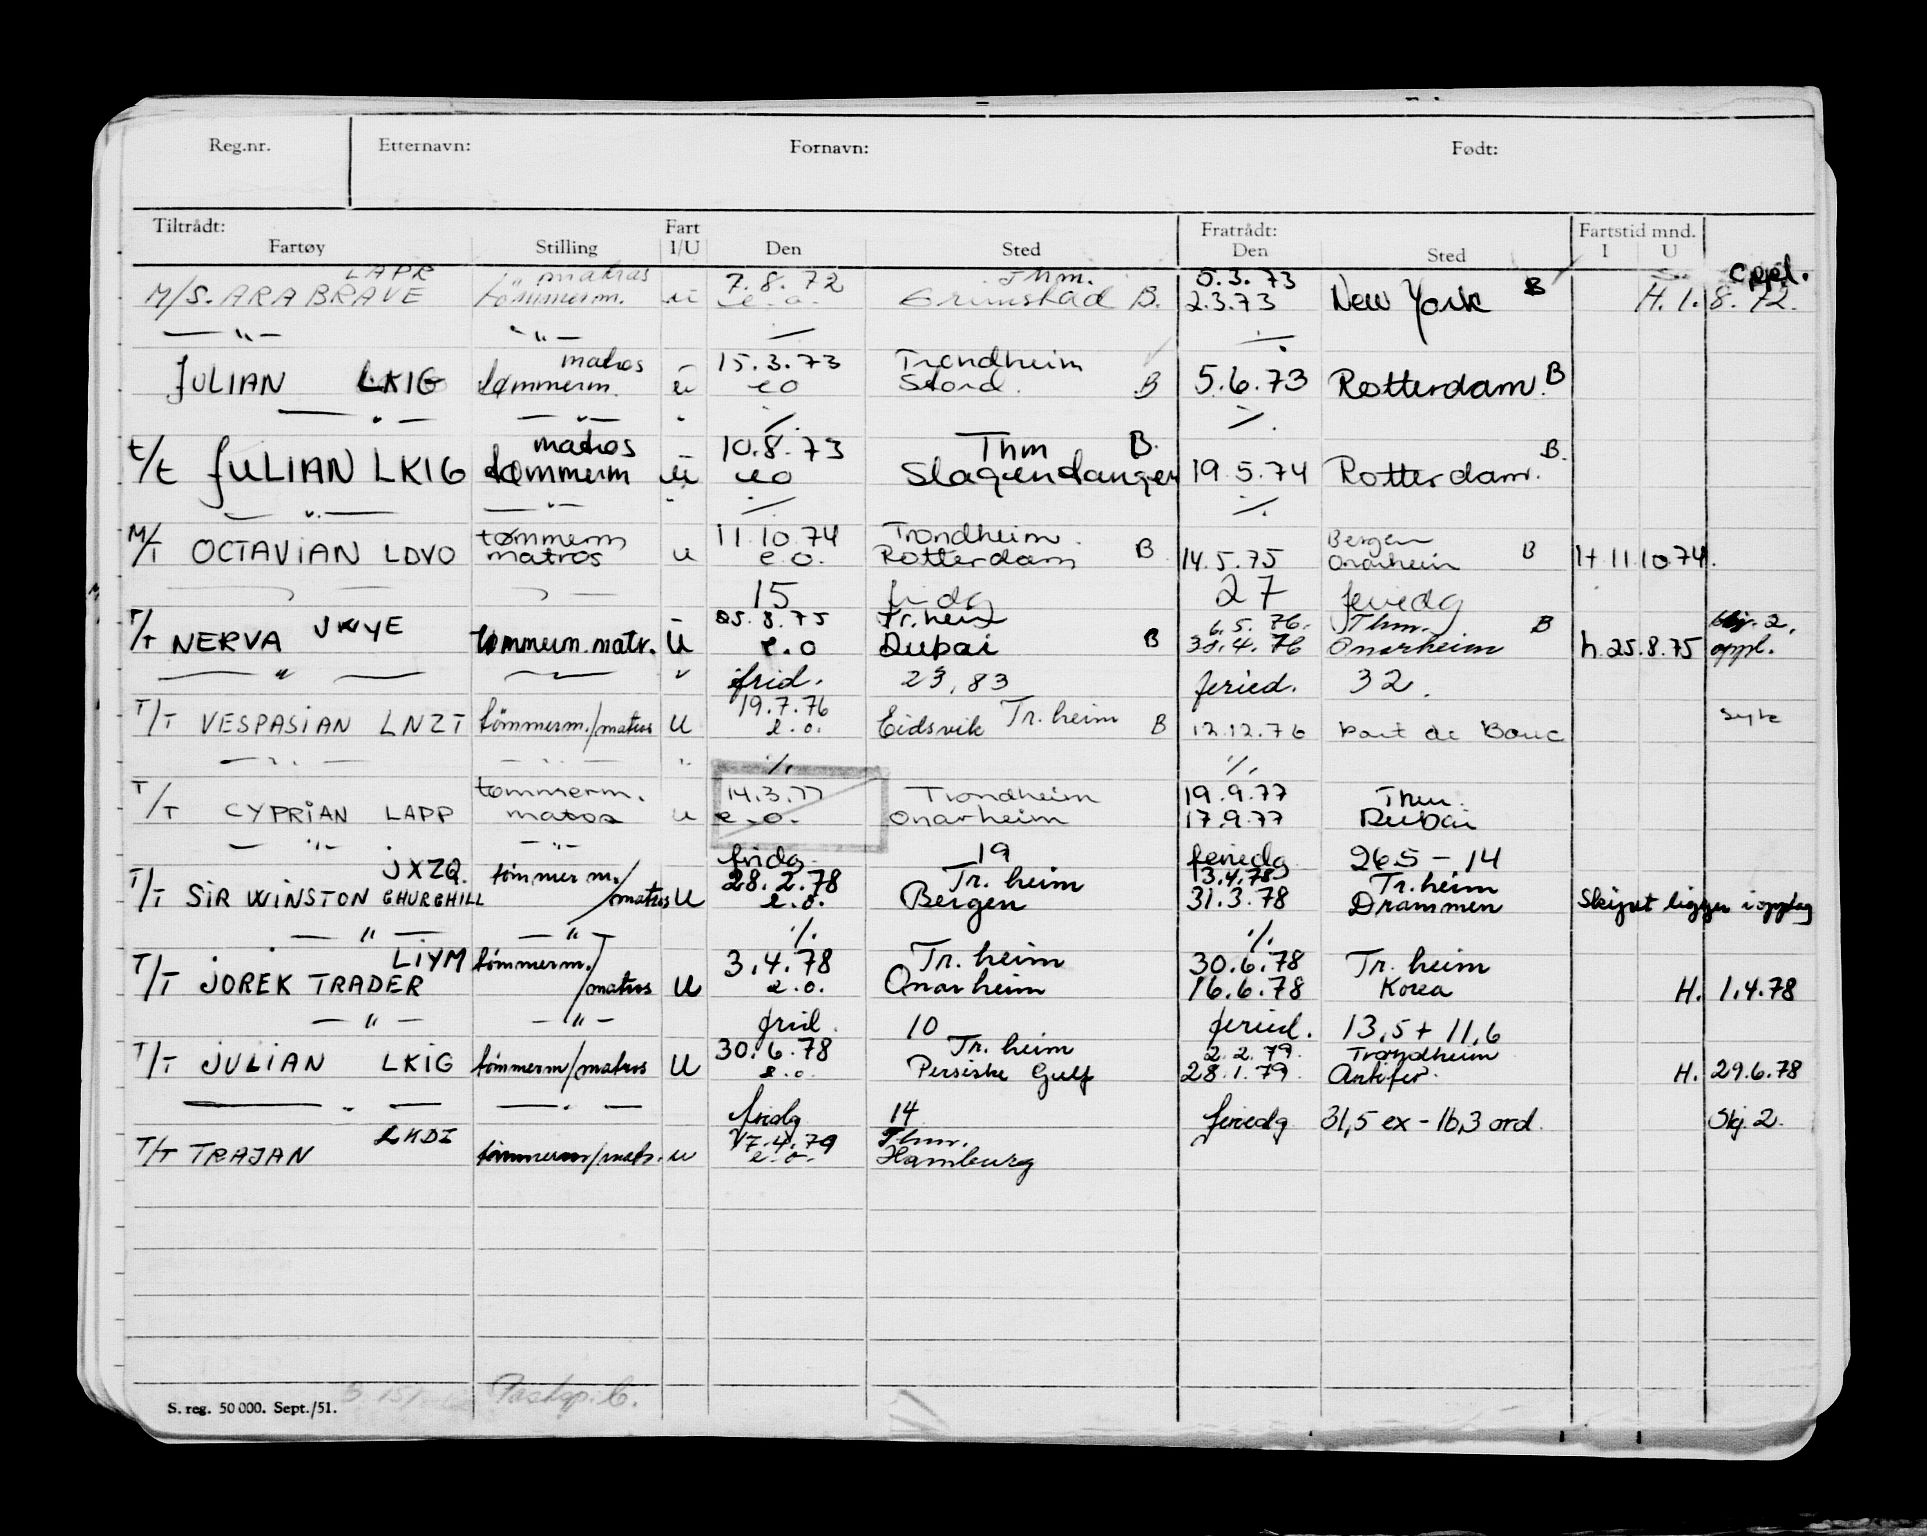 Reg.nr. Etternavn: Fornavn: Født:
Tiltrådt: Fart Fratrådt: Fartstid mnd.
Fartøy Stilling I/U Den Sted Den Sted I U
LAPR matros 7.8.72 Thm. 5.3.73 oppl.
M/S. ARABRAVE tömmerm. u e.o. Grimstad B. 2.3.73 New York B H. 1.8.72.
— " — " — ./. ./.
matros 15.3.73 Trondheim
JULIAN LKIG tømmerm. u eo Stord. B 5.6.73 Rotterdam. B
— " — — " — " ./. ./.
matros 10.8.73 Thm B. B.
t/t JULIAN LKIG tømmerm u eo Slagentangen 19.5.74 Rotterdam.
— " — — " — " ./. ./.
M/T tømmerm 11.10.74 Trondheim. Bergen
OCTAVIAN LDVO matros u e.o. Rotterdam B 14.5.75 Onarheim B H 11.10.74.
15 fridg 27 feriedg
T/T JWYE 25.8.75 Tr.heim 6.5.76. Thm. B 2.
NERVA tømmerm. matr. U e.o Dubai B 30.4.76 Onarheim h. 25.8.75 oppl.
— " — " frid. 23,83 feried. 32.
T/T 19.7.76 Tr.heim
VESPASIAN LNZT tömmerm./matros U e.o. Eidsvik B 12.12.76 Port de Bouc syk
— " — — " — " ./. ./.
T/T tømmerm. 14.3.77 Trondheim 19.9.77 Thm.
CYPRIAN LAPP matros u e.o. Onarheim 17.9.77 Dubai
— " — — " — fridg. 19 feriedg 26.5 – 14
T/T JXZQ. tömmerm. 28.2.78 Tr. heim 13.4.78 Tr.heim
SIR WINSTON CHURCHILL /matros U e.o. Bergen 31.3.78 Drammen Skipet ligger i opplag
— " — — " — ./. ./.
T/T LIYM tömmerm. 3.4.78 Tr. heim 30.6.78 Tr. heim
JOREK TRADER /matros U e.o. Onarheim 16.6.78 Korea H. 1.4.78
— " — — " — frid. 10 feried. 13,5 + 11,6
30.6.78 Tr. heim 2.2.79. Trondheim
T/T JULIAN LKIG tömmerm/matros U e.o. Persiske Gulf 28.1.79. Antifer. H. 29.6.78
— " — — " — fridg 14 feriedg 31,5 ex – 16,3 ord. Skj 2.
LKDI 17.4.79 Thm.
T/T TRAJAN tömmerm/matr. u e.o. Hamburg
S. reg. 50 000. Sept./51.